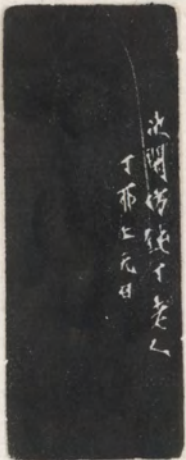 次閑仿錢丁老人
丁卯上元日